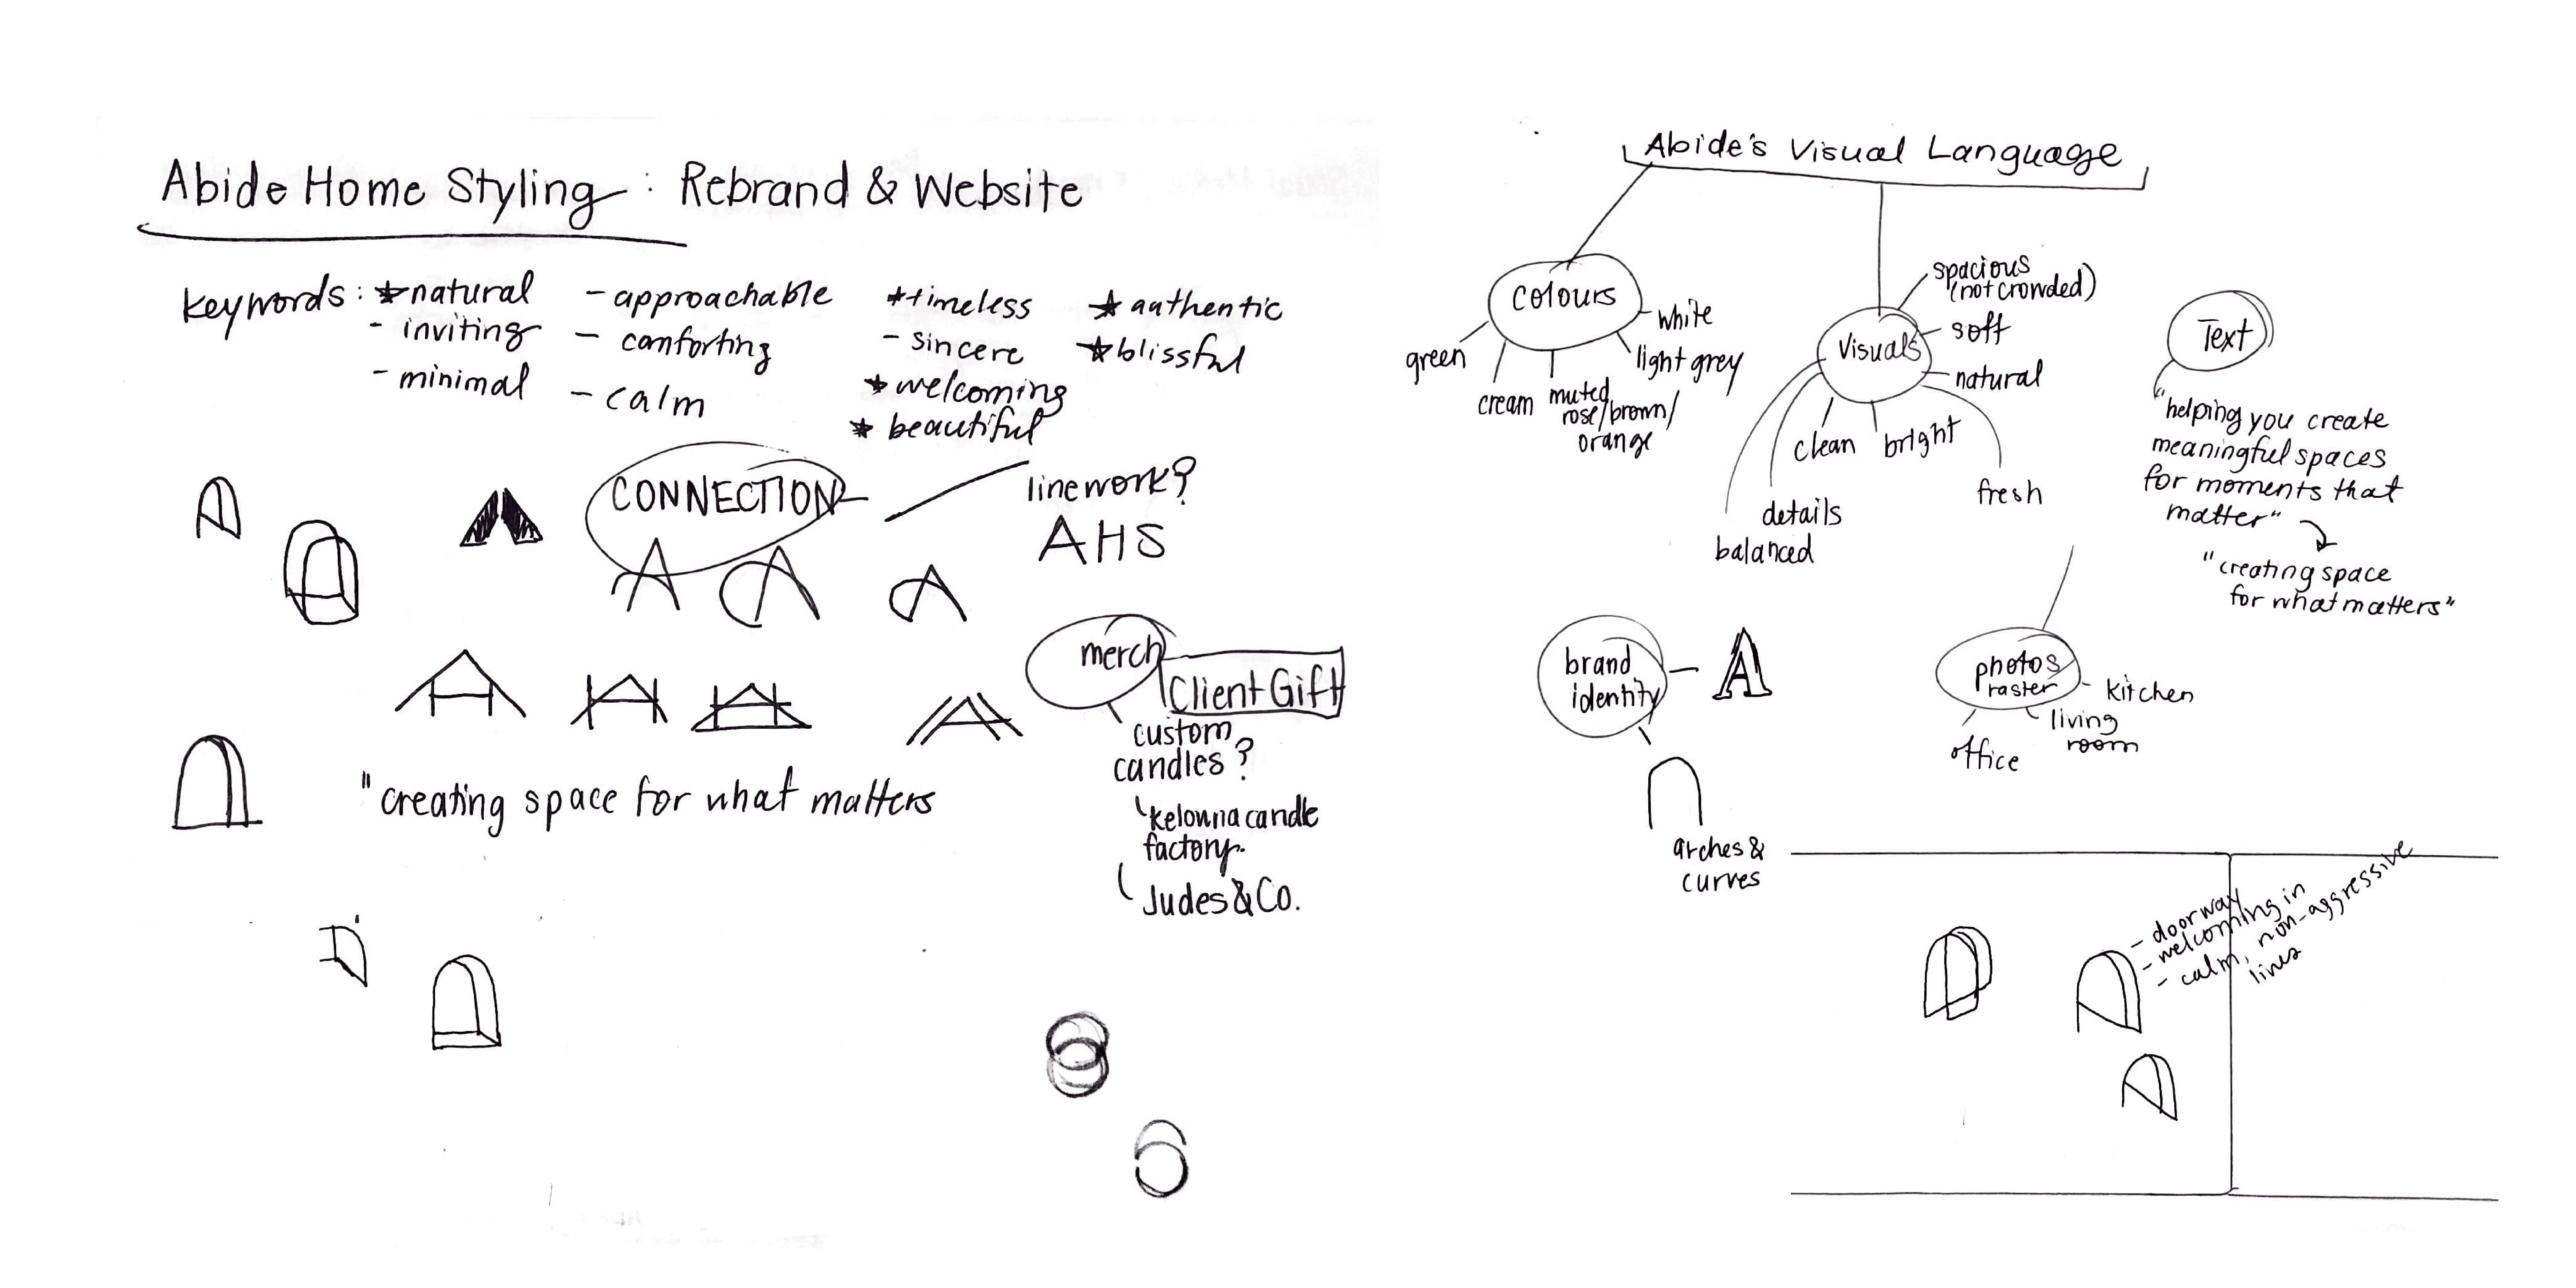 Abide Home Styling : Rebrand & Website
keywords: ★ natural
- inviting
- minimal
- approachable
- comforting
- calm
★ timeless
- sincere
★ welcoming
★ beautiful
★ authentic
★ blissful
CONNECTION
linework?
AHS
merch
Client Gift
custom
candles?
kelowna candle
factory.
Judes & Co.
"creating space for what matters
Abide's Visual Language
colours
green
cream
muted
rose/brown/
orange
light grey
white
visuals
spacious
(not crowded)
soft
natural
fresh
bright
clean
details
balanced
Text
"helping you create
meaningful spaces
for moments that
matter"
"creating space
for what matters"
brand
identity
A
arches &
curves
photos
raster
kitchen
living
room
office
- doorway
- welcoming in
- calm, non-aggressive
lines